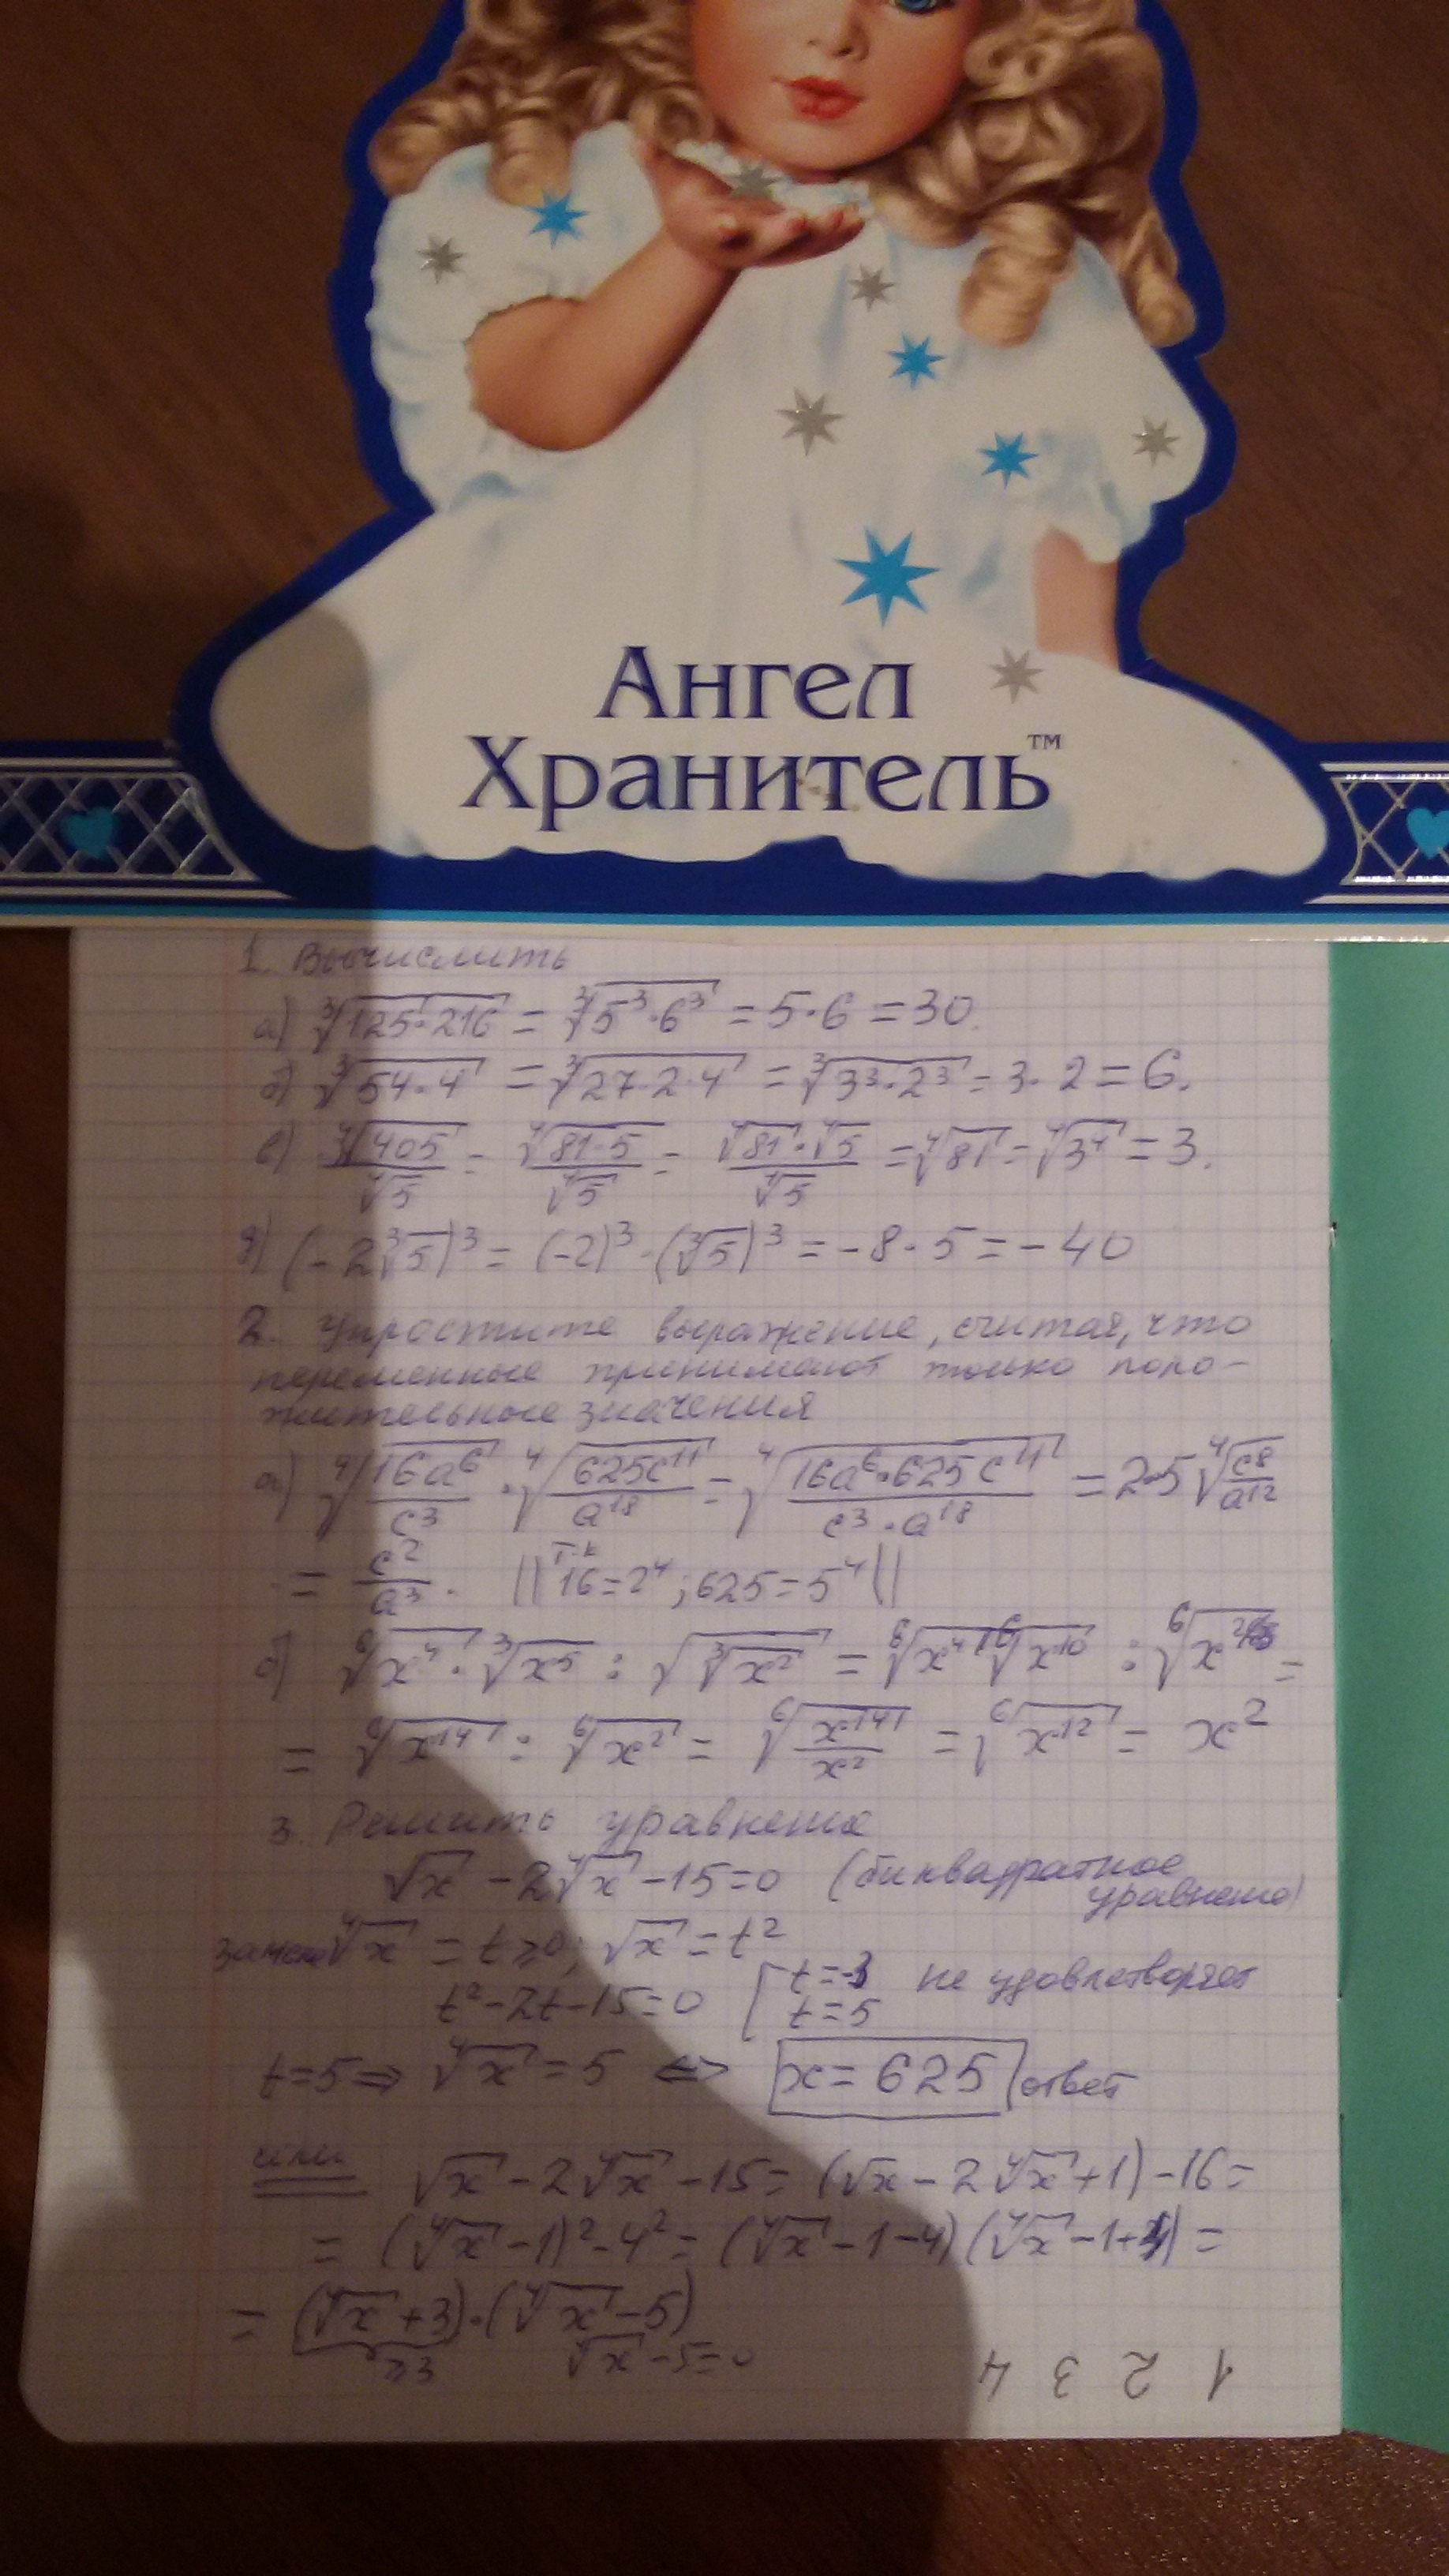 Ангел
Хранитель™
1. Вычислить
а) ∛(125·216) = ∛(5³·6³) = 5·6 = 30.
б) ∛(54·4) = ∛(27·2·4) = ∛(3³·2³) = 3·2 = 6.
в) ∜405/∜5 = ∜(81·5)/∜5 = (∜81·∜5)/∜5 = ∜81 = ∜3⁴ = 3.
д) (-2∛5)³ = (-2)³·(∛5)³ = -8·5 = -40
2. Упростите выражение, считая, что
переменные принимают только поло-
жительные значения
а) ∜(16a⁶/c³) · ∜(625c¹¹/a¹⁸) = ∜((16a⁶·625c¹¹)/(c³·a¹⁸)) = 2·5 ∜(c⁸/a¹²)
= c²/a³. || т.к 16=2⁴; 625=5⁴ ||
б) ⁶√x⁴ · ∛x⁵ : √(∛x²) = ⁶√x⁴ ⁶√x¹⁰ : ⁶√x² =
= ⁶√x¹⁴ : ⁶√x² = ⁶√(x¹⁴/x²) = ⁶√x¹² = x²
3. Решить уравнение
√x - 2∜x - 15 = 0 (биквадратное
уравнение)
замена ∜x = t ⩾ 0; √x = t²
t² - 2t - 15 = 0 [ t = -3 не удовлетворяет
t = 5
t = 5 ⇒ ∜x = 5 ⇔ x = 625 ответ
или √x - 2∜x - 15 = (√x - 2∜x + 1) - 16 =
= (∜x - 1)² - 4² = (∜x - 1 - 4)(∜x - 1 + 4) =
= (∜x + 3)·(∜x - 5)
⩾3 ∜x - 5 = 0
1 2 3 4